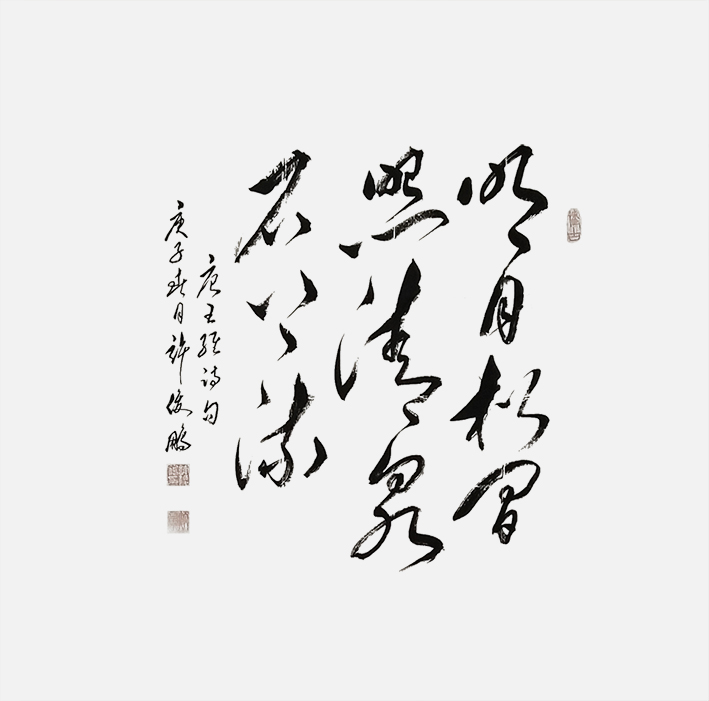 明月松間
照清泉
石上流
唐王維詩句
庚子春日許俊鵬